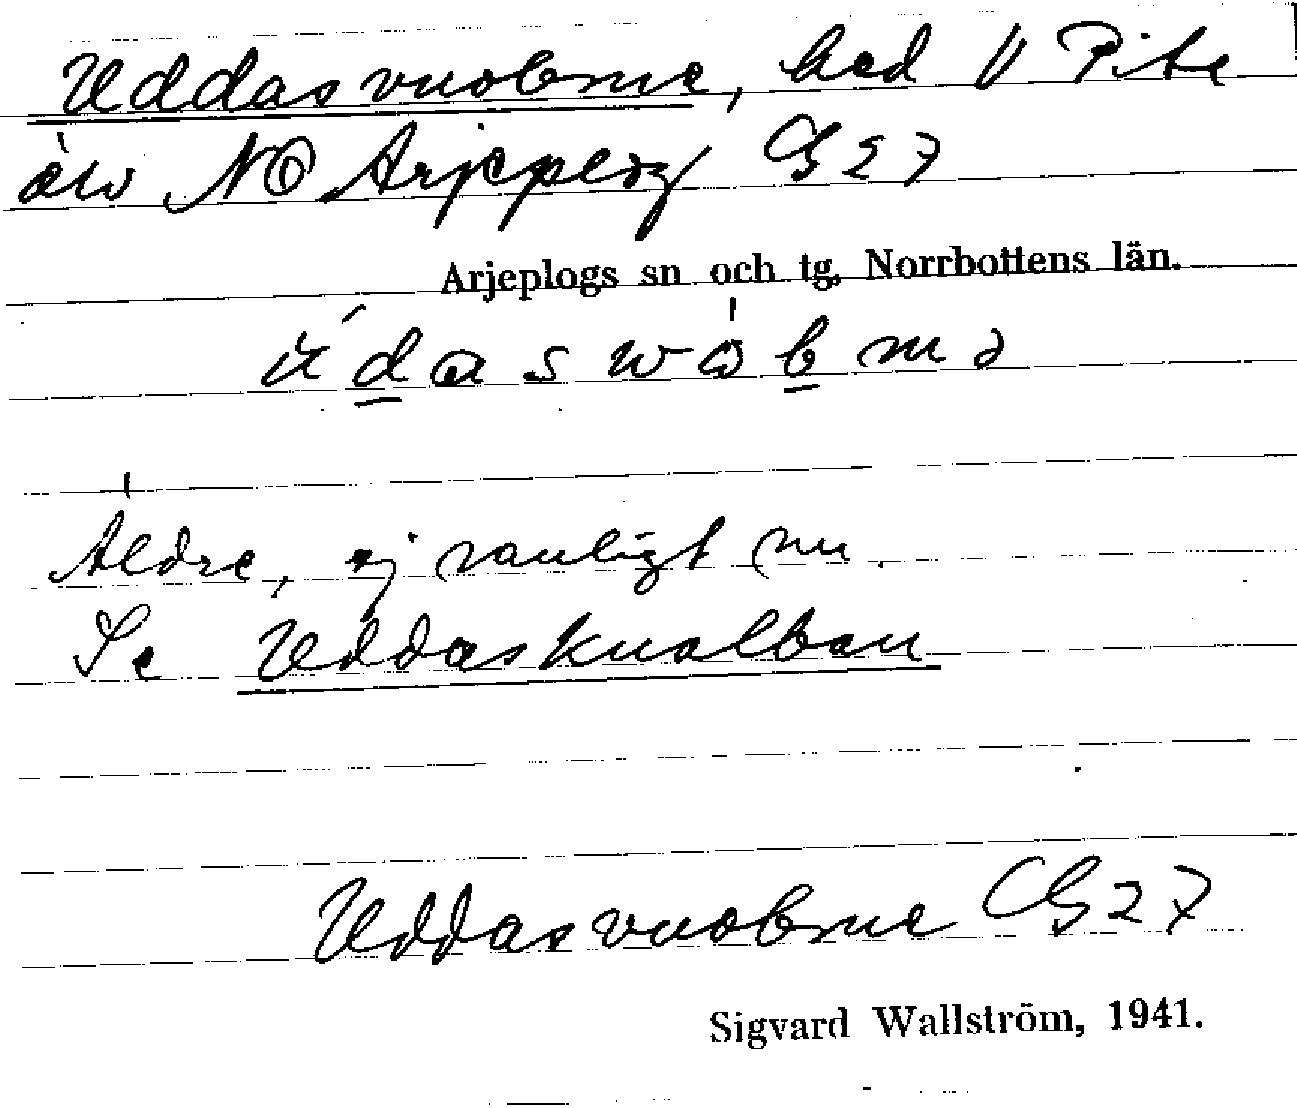 Uddasvuobme, hed V Pite
älv NO Arjeplog GS 27
Arjeplogs sn och tg, Norrbottens län.
Äldre, ej vanligt nu
Se Uddaskualban
Uddasvuobme GS 27
Sigvard Wallström, 1941.